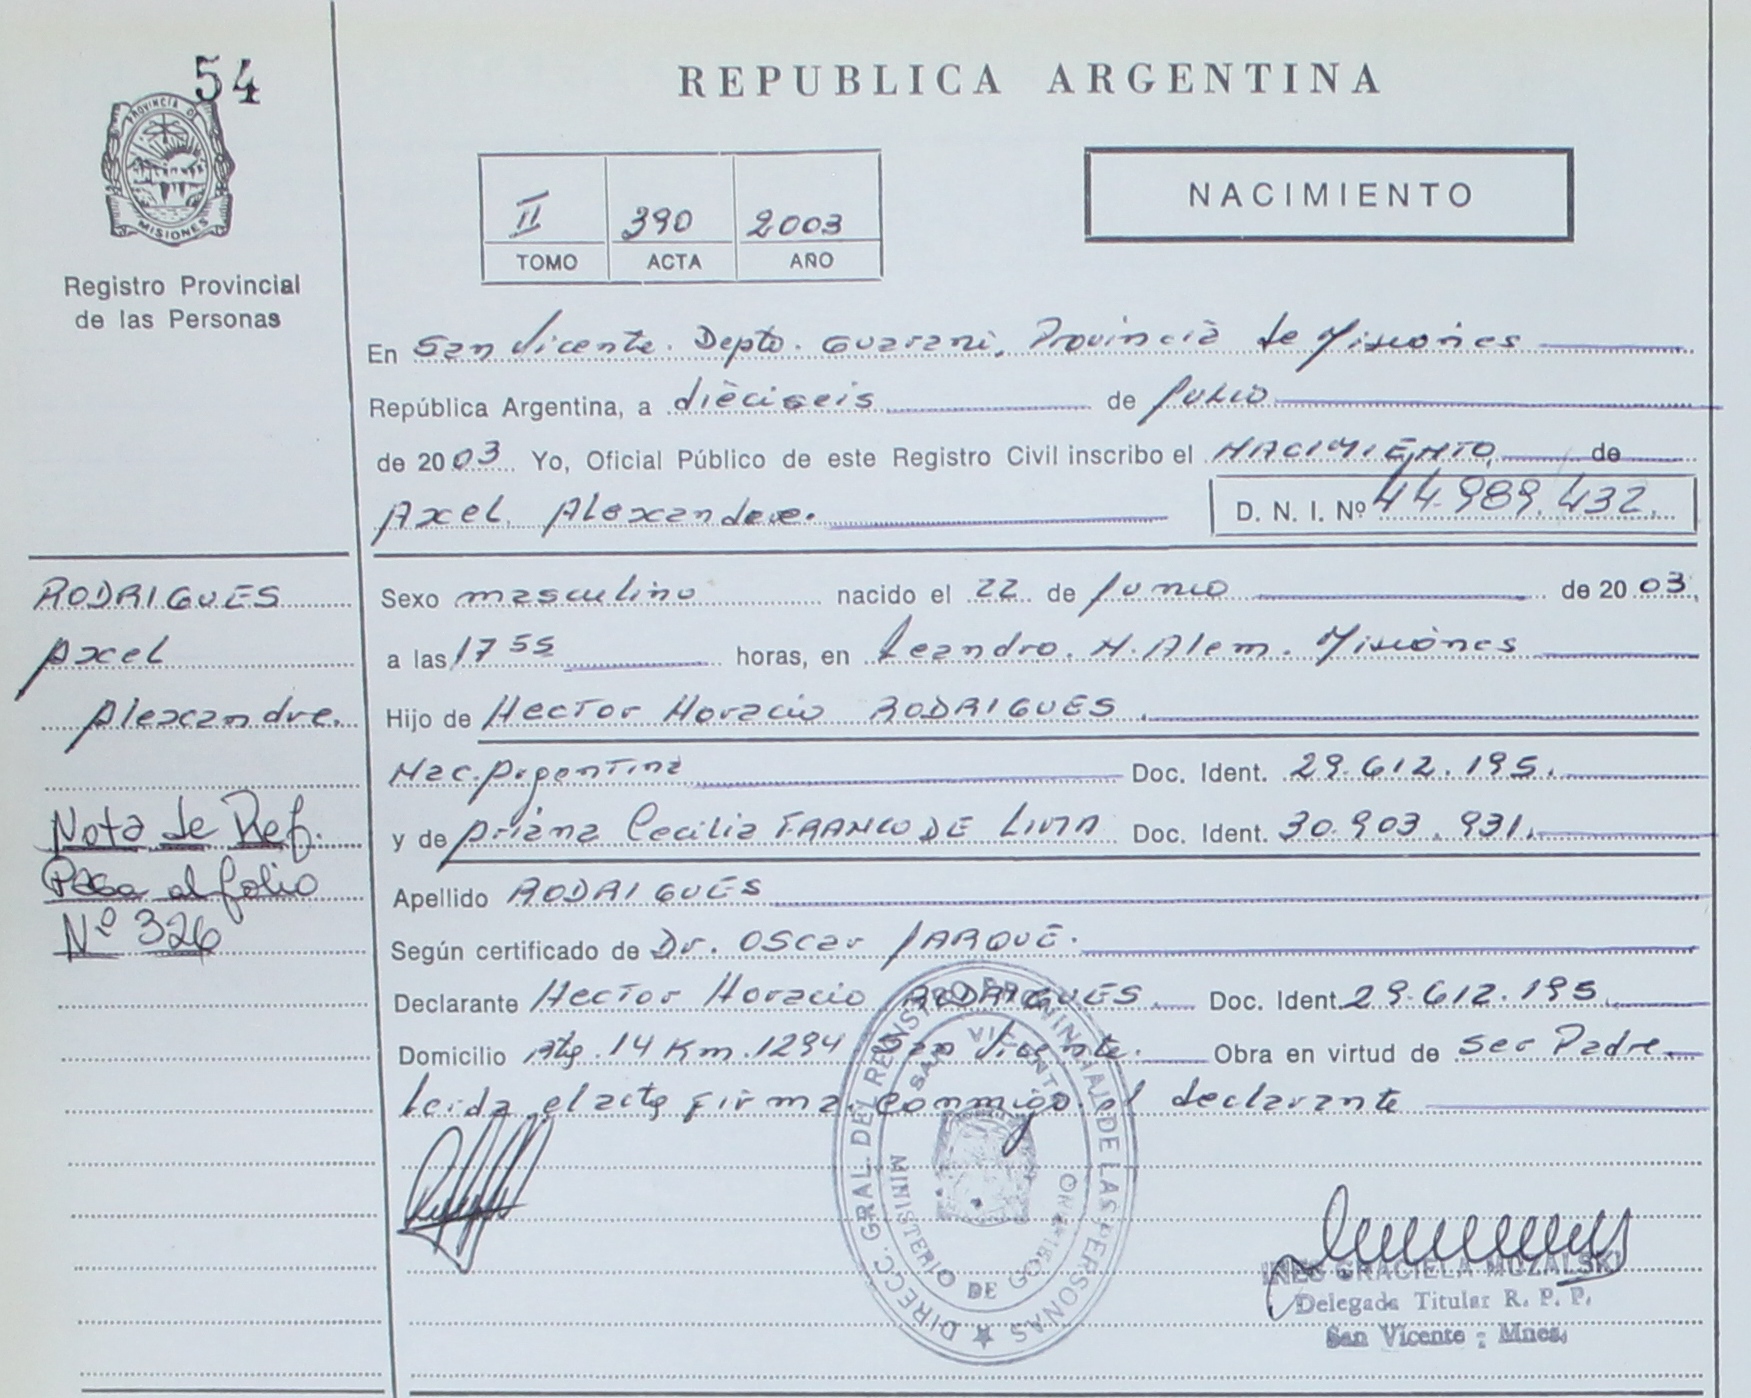 54
PROVINCIA DE
MISIONES
Registro Provincial
de las Personas
REPUBLICA ARGENTINA
II 390 2003
TOMO ACTA AÑO
NACIMIENTO
En San Vicente. Depto. Guarani, Provincia de Misiones
República Argentina, a dieciseis de Julio
de 2003 Yo, Oficial Público de este Registro Civil inscribo el NACIMIENTO de
Axel Alexandre. D. N. I. Nº 44.989.432.
RODRIGUES
Axel
Alexandre.
Nota de Ref.
Pasa al folio
Nº 326
Sexo masculino nacido el 22 de Junio de 2003.
a las 17 55 horas, en Leandro. N. Alem. Misiones
Hijo de Hector Horacio RODRIGUES
Nac. Argentina Doc. Ident. 29.612.195.
y de Ariana Cecilia FRANCO DE LIMA Doc. Ident. 30.903.931.
Apellido RODRIGUES
Según certificado de Dr. Oscar JARQUE.
Declarante Hector Horacio RODRIGUES Doc. Ident. 29.612.195.
Domicilio Rta. 14 Km. 1294 San Vicente. Obra en virtud de ser Padre
Leida el acta firma conmigo el declarante
DIRECC. GRAL. DEL REGISTRO PROVINCIAL DE LAS PERSONAS
SAN VICENTE
MINISTERIO DE GOBIERNO
INES GRACIELA MUZALSKI
Delegada Titular R. P. P.
San Vicente - Mnes.